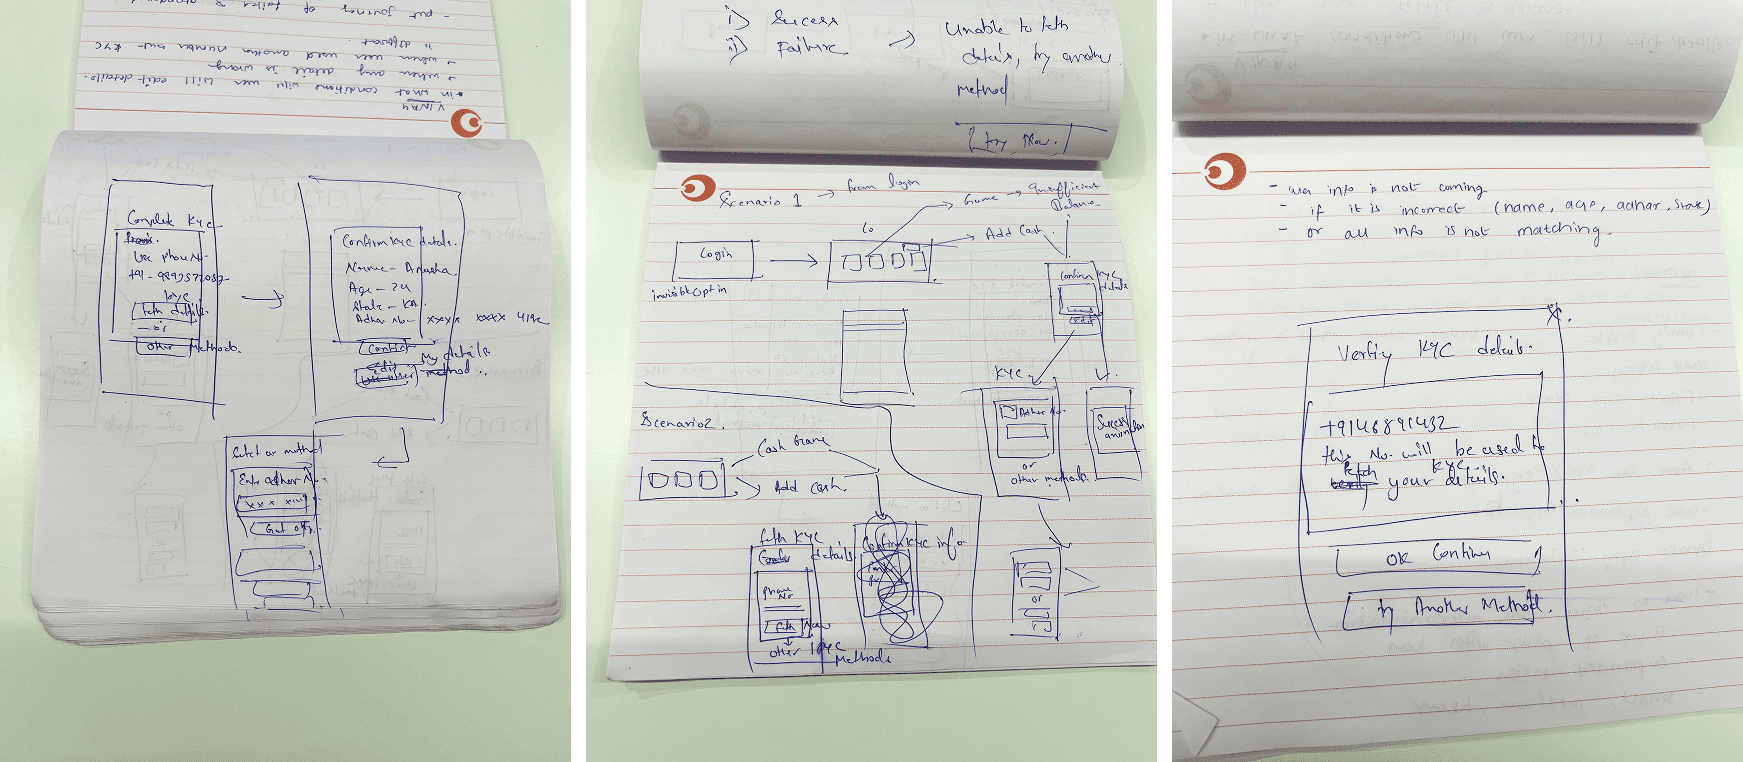 - put journey of
is different.
→ when user used another number but KYC
→ when any detail is wrong
in what conditions will user will edit details.
VINAY
Complete KYC
Use phone No.
+91-
KYC
Feth details
or
Other Methods.
Confirm KYC details.
Name - Anusha
Age - 24
State - KA.
Adhar No - xxxx xxxx
Confirm
edit My details
Use other method..
method
Enter adhar No.
Get OTP
i) Sucess
ii) Failure → Unable to feth
details, try another
Method
Try Now.
Scenario 1 → from login
Game → Insufficient
Balance.
Lo
Add Cash.
Login
invisible Opt in
Confirm KYC
details
edit
KYC
Adhar No.
or
other methods.
Success
animation
Scenario 2.
Cash Game
Add Cash
feth KYC
details
phone
No
Feth Now
other KYC
Methods
Confirm KYC info
or
- user info is not coming
- if it is incorrect (name, age, adhar, state)
- or all info is not matching.
X.
Verfiy KYC details.
this No. will be used to
fetch KYC
your details.
OK Continu
try Another Method.